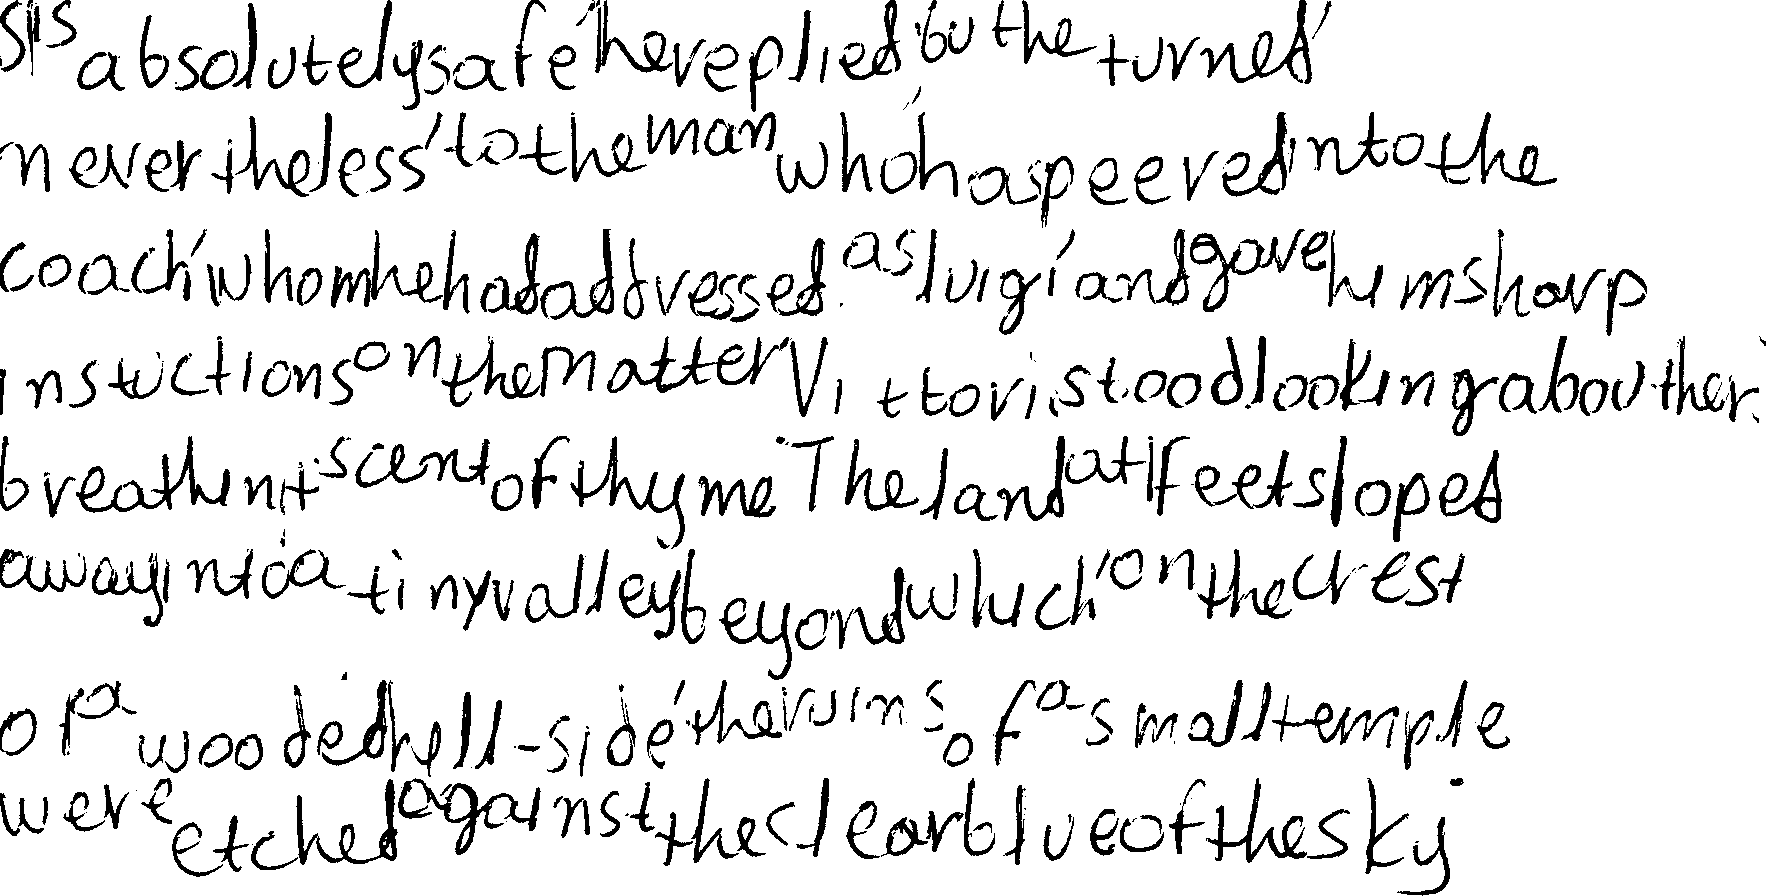 s'is absolutely safe' he replied, but he turned
nevertheless' to the man who has peered into the
coach, whom he had addressed as luigi, and gave him sharp
instuctions on the matter. Vittori stood looking about her.
breath in it scent of thyme. The land at feet sloped
away into a tiny valley beyond which, on the crest
of a wooded hill-side, the ruins of a small temple
were etched against the clear blue of the sky.